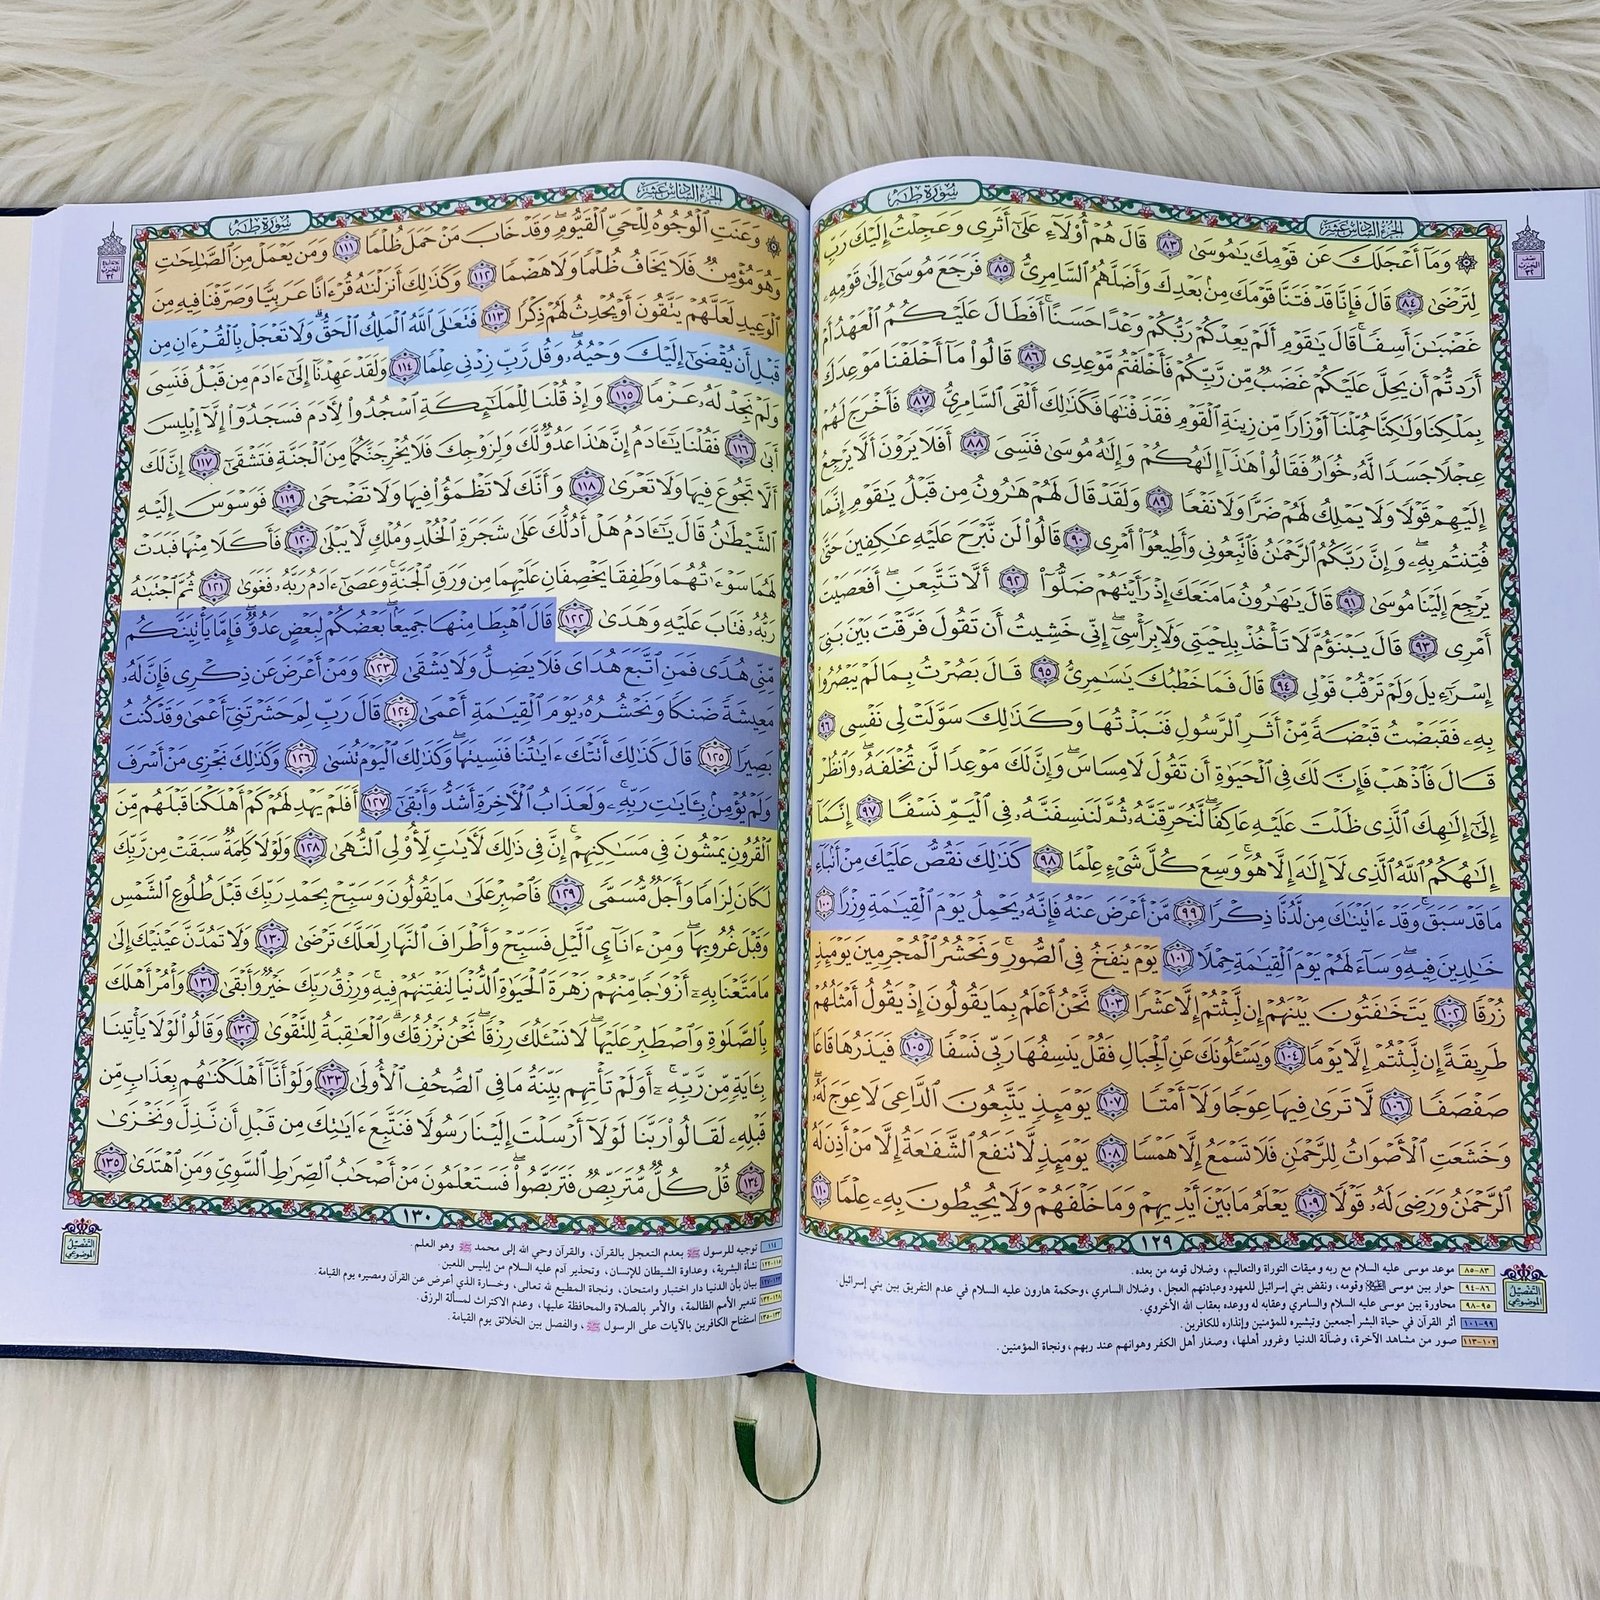 سُورَةُ طه
الجزء السادس عشر
۞ وَمَآ أَعْجَلَكَ عَن قَوْمِكَ يَٰمُوسَىٰ ٨٣ قَالَ هُمْ أُوْلَآءِ عَلَىٰٓ أَثَرِى وَعَجِلْتُ إِلَيْكَ رَبِّ
لِتَرْضَىٰ ٨٤ قَالَ فَإِنَّا قَدْ فَتَنَّا قَوْمَكَ مِنۢ بَعْدِكَ وَأَضَلَّهُمُ ٱلسَّامِرِىُّ ٨٥ فَرَجَعَ مُوسَىٰٓ إِلَىٰ قَوْمِهِۦ
غَضْبَٰنَ أَسِفًا ۚ قَالَ يَٰقَوْمِ أَلَمْ يَعِدْكُمْ رَبُّكُمْ وَعْدًا حَسَنًا ۚ أَفَطَالَ عَلَيْكُمُ ٱلْعَهْدُ أَمْ
أَرَدتُّمْ أَن يَحِلَّ عَلَيْكُمْ غَضَبٌ مِّن رَّبِّكُمْ فَأَخْلَفْتُم مَّوْعِدِى ٨٦ قَالُوا۟ مَآ أَخْلَفْنَا مَوْعِدَكَ
بِمَلْكِنَا وَلَٰكِنَّا حُمِّلْنَآ أَوْزَارًا مِّن زِينَةِ ٱلْقَوْمِ فَقَذَفْنَٰهَا فَكَذَٰلِكَ أَلْقَى ٱلسَّامِرِىُّ ٨٧ فَأَخْرَجَ لَهُمْ
عِجْلًا جَسَدًا لَّهُۥ خُوَارٌ فَقَالُوا۟ هَٰذَآ إِلَٰهُكُمْ وَإِلَٰهُ مُوسَىٰ فَنَسِىَ ٨٨ أَفَلَا يَرَوْنَ أَلَّا يَرْجِعُ
إِلَيْهِمْ قَوْلًا وَلَا يَمْلِكُ لَهُمْ ضَرًّا وَلَا نَفْعًا ٨٩ وَلَقَدْ قَالَ لَهُمْ هَٰرُونُ مِن قَبْلُ يَٰقَوْمِ إِنَّمَا
فُتِنتُم بِهِۦ ۖ وَإِنَّ رَبَّكُمُ ٱلرَّحْمَٰنُ فَٱتَّبِعُونِى وَأَطِيعُوٓا۟ أَمْرِى ٩٠ قَالُوا۟ لَن نَّبْرَحَ عَلَيْهِ عَٰكِفِينَ حَتَّىٰ
يَرْجِعَ إِلَيْنَا مُوسَىٰ ٩١ قَالَ يَٰهَٰرُونُ مَا مَنَعَكَ إِذْ رَأَيْتَهُمْ ضَلُّوٓا۟ ٩٢ أَلَّا تَتَّبِعَنِ ۖ أَفَعَصَيْتَ
أَمْرِى ٩٣ قَالَ يَبْنَؤُمَّ لَا تَأْخُذْ بِلِحْيَتِى وَلَا بِرَأْسِىٓ ۖ إِنِّى خَشِيتُ أَن تَقُولَ فَرَّقْتَ بَيْنَ بَنِىٓ
إِسْرَٰٓءِيلَ وَلَمْ تَرْقُبْ قَوْلِى ٩٤ قَالَ فَمَا خَطْبُكَ يَٰسَٰمِرِىُّ ٩٥ قَالَ بَصُرْتُ بِمَا لَمْ يَبْصُرُوا۟
بِهِۦ فَقَبَضْتُ قَبْضَةً مِّنْ أَثَرِ ٱلرَّسُولِ فَنَبَذْتُهَا وَكَذَٰلِكَ سَوَّلَتْ لِى نَفْسِى ٩٦
قَالَ فَٱذْهَبْ فَإِنَّ لَكَ فِى ٱلْحَيَوٰةِ أَن تَقُولَ لَا مِسَاسَ ۖ وَإِنَّ لَكَ مَوْعِدًا لَّن تُخْلَفَهُۥ ۖ وَٱنظُرْ
إِلَىٰٓ إِلَٰهِكَ ٱلَّذِى ظَلْتَ عَلَيْهِ عَاكِفًا ۖ لَّنُحَرِّقَنَّهُۥ ثُمَّ لَنَنسِفَنَّهُۥ فِى ٱلْيَمِّ نَسْفًا ٩٧ إِنَّمَآ
إِلَٰهُكُمُ ٱللَّهُ ٱلَّذِى لَآ إِلَٰهَ إِلَّا هُوَ ۚ وَسِعَ كُلَّ شَىْءٍ عِلْمًا ٩٨ كَذَٰلِكَ نَقُصُّ عَلَيْكَ مِنْ أَنۢبَآءِ
مَا قَدْ سَبَقَ ۚ وَقَدْ ءَاتَيْنَٰكَ مِن لَّدُنَّا ذِكْرًا ٩٩ مَّنْ أَعْرَضَ عَنْهُ فَإِنَّهُۥ يَحْمِلُ يَوْمَ ٱلْقِيَٰمَةِ وِزْرًا ١٠٠
خَٰلِدِينَ فِيهِ ۖ وَسَآءَ لَهُمْ يَوْمَ ٱلْقِيَٰمَةِ حِمْلًا ١٠١ يَوْمَ يُنفَخُ فِى ٱلصُّورِ ۚ وَنَحْشُرُ ٱلْمُجْرِمِينَ يَوْمَئِذٍ
زُرْقًا ١٠٢ يَتَخَٰفَتُونَ بَيْنَهُمْ إِن لَّبِثْتُمْ إِلَّا عَشْرًا ١٠٣ نَّحْنُ أَعْلَمُ بِمَا يَقُولُونَ إِذْ يَقُولُ أَمْثَلُهُمْ
طَرِيقَةً إِن لَّبِثْتُمْ إِلَّا يَوْمًا ١٠٤ وَيَسْـَٔلُونَكَ عَنِ ٱلْجِبَالِ فَقُلْ يَنسِفُهَا رَبِّى نَسْفًا ١٠٥ فَيَذَرُهَا قَاعًا
صَفْصَفًا ١٠٦ لَّا تَرَىٰ فِيهَا عِوَجًا وَلَآ أَمْتًا ١٠٧ يَوْمَئِذٍ يَتَّبِعُونَ ٱلدَّاعِىَ لَا عِوَجَ لَهُۥ ۖ
وَخَشَعَتِ ٱلْأَصْوَاتُ لِلرَّحْمَٰنِ فَلَا تَسْمَعُ إِلَّا هَمْسًا ١٠٨ يَوْمَئِذٍ لَّا تَنفَعُ ٱلشَّفَٰعَةُ إِلَّا مَنْ أَذِنَ لَهُ
ٱلرَّحْمَٰنُ وَرَضِىَ لَهُۥ قَوْلًا ١٠٩ يَعْلَمُ مَا بَيْنَ أَيْدِيهِمْ وَمَا خَلْفَهُمْ وَلَا يُحِيطُونَ بِهِۦ عِلْمًا ١١٠
١٢٩
التفصيل الموضوعي
٨٣-٨٥ موعد موسى عليه السلام مع ربه وميقات التوراة والتعاليم، وضلال قومه من بعده.
٨٦-٩٤ حوار بين موسى وقومه، ونقض بني إسرائيل للعهود وعبادتهم العجل، وضلال السامري، وحكمة هارون عليه السلام في عدم التفريق بين بني إسرائيل.
٩٥-٩٨ محاورة بين موسى عليه السلام والسامري وعقابه له ووعده بعقاب الله الأخروي.
٩٩-١٠١ أثر القرآن في حياة البشر أجمعين وتبشيره للمؤمنين وإنذاره للكافرين.
١٠٢-١١٣ صور من مشاهد الآخرة، وضآلة الدنيا وغرور أهلها، وصغار أهل الكفر وهوانهم عند ربهم، ونجاة المؤمنين.
الجزء السادس عشر
سُورَةُ طه
۞ وَعَنَتِ ٱلْوُجُوهُ لِلْحَىِّ ٱلْقَيُّومِ ۖ وَقَدْ خَابَ مَنْ حَمَلَ ظُلْمًا ١١١ وَمَن يَعْمَلْ مِنَ ٱلصَّٰلِحَٰتِ
وَهُوَ مُؤْمِنٌ فَلَا يَخَافُ ظُلْمًا وَلَا هَضْمًا ١١٢ وَكَذَٰلِكَ أَنزَلْنَٰهُ قُرْءَانًا عَرَبِيًّا وَصَرَّفْنَا فِيهِ مِنَ
ٱلْوَعِيدِ لَعَلَّهُمْ يَتَّقُونَ أَوْ يُحْدِثُ لَهُمْ ذِكْرًا ١١٣ فَتَعَٰلَى ٱللَّهُ ٱلْمَلِكُ ٱلْحَقُّ ۗ وَلَا تَعْجَلْ بِٱلْقُرْءَانِ مِن
قَبْلِ أَن يُقْضَىٰٓ إِلَيْكَ وَحْيُهُۥ ۖ وَقُل رَّبِّ زِدْنِى عِلْمًا ١١٤ وَلَقَدْ عَهِدْنَآ إِلَىٰٓ ءَادَمَ مِن قَبْلُ فَنَسِىَ
وَلَمْ نَجِدْ لَهُۥ عَزْمًا ١١٥ وَإِذْ قُلْنَا لِلْمَلَٰٓئِكَةِ ٱسْجُدُوا۟ لِءَادَمَ فَسَجَدُوٓا۟ إِلَّآ إِبْلِيسَ
أَبَىٰ ١١٦ فَقُلْنَا يَٰٓـَٔادَمُ إِنَّ هَٰذَا عَدُوٌّ لَّكَ وَلِزَوْجِكَ فَلَا يُخْرِجَنَّكُمَا مِنَ ٱلْجَنَّةِ فَتَشْقَىٰٓ ١١٧ إِنَّ لَكَ
أَلَّا تَجُوعَ فِيهَا وَلَا تَعْرَىٰ ١١٨ وَأَنَّكَ لَا تَظْمَؤُا۟ فِيهَا وَلَا تَضْحَىٰ ١١٩ فَوَسْوَسَ إِلَيْهِ
ٱلشَّيْطَٰنُ قَالَ يَٰٓـَٔادَمُ هَلْ أَدُلُّكَ عَلَىٰ شَجَرَةِ ٱلْخُلْدِ وَمُلْكٍ لَّا يَبْلَىٰ ١٢٠ فَأَكَلَا مِنْهَا فَبَدَتْ
لَهُمَا سَوْءَٰتُهُمَا وَطَفِقَا يَخْصِفَانِ عَلَيْهِمَا مِن وَرَقِ ٱلْجَنَّةِ ۚ وَعَصَىٰٓ ءَادَمُ رَبَّهُۥ فَغَوَىٰ ١٢١ ثُمَّ ٱجْتَبَٰهُ
رَبُّهُۥ فَتَابَ عَلَيْهِ وَهَدَىٰ ١٢٢ قَالَ ٱهْبِطَا مِنْهَا جَمِيعًۢا ۖ بَعْضُكُمْ لِبَعْضٍ عَدُوٌّ ۖ فَإِمَّا يَأْتِيَنَّكُم
مِّنِّى هُدًى فَمَنِ ٱتَّبَعَ هُدَاىَ فَلَا يَضِلُّ وَلَا يَشْقَىٰ ١٢٣ وَمَنْ أَعْرَضَ عَن ذِكْرِى فَإِنَّ لَهُۥ
مَعِيشَةً ضَنكًا وَنَحْشُرُهُۥ يَوْمَ ٱلْقِيَٰمَةِ أَعْمَىٰ ١٢٤ قَالَ رَبِّ لِمَ حَشَرْتَنِىٓ أَعْمَىٰ وَقَدْ كُنتُ
بَصِيرًا ١٢٥ قَالَ كَذَٰلِكَ أَتَتْكَ ءَايَٰتُنَا فَنَسِيتَهَا ۖ وَكَذَٰلِكَ ٱلْيَوْمَ تُنسَىٰ ١٢٦ وَكَذَٰلِكَ نَجْزِى مَنْ أَسْرَفَ
وَلَمْ يُؤْمِنۢ بِـَٔايَٰتِ رَبِّهِۦ ۚ وَلَعَذَابُ ٱلْءَاخِرَةِ أَشَدُّ وَأَبْقَىٰٓ ١٢٧ أَفَلَمْ يَهْدِ لَهُمْ كَمْ أَهْلَكْنَا قَبْلَهُم مِّنَ
ٱلْقُرُونِ يَمْشُونَ فِى مَسَٰكِنِهِمْ ۗ إِنَّ فِى ذَٰلِكَ لَءَايَٰتٍ لِّأُو۟لِى ٱلنُّهَىٰ ١٢٨ وَلَوْلَا كَلِمَةٌ سَبَقَتْ مِن رَّبِّكَ
لَكَانَ لِزَامًا وَأَجَلٌ مُّسَمًّى ١٢٩ فَٱصْبِرْ عَلَىٰ مَا يَقُولُونَ وَسَبِّحْ بِحَمْدِ رَبِّكَ قَبْلَ طُلُوعِ ٱلشَّمْسِ
وَقَبْلَ غُرُوبِهَا ۖ وَمِنْ ءَانَآئِ ٱلَّيْلِ فَسَبِّحْ وَأَطْرَافَ ٱلنَّهَارِ لَعَلَّكَ تَرْضَىٰ ١٣٠ وَلَا تَمُدَّنَّ عَيْنَيْكَ إِلَىٰ
مَا مَتَّعْنَا بِهِۦٓ أَزْوَٰجًا مِّنْهُمْ زَهْرَةَ ٱلْحَيَوٰةِ ٱلدُّنْيَا لِنَفْتِنَهُمْ فِيهِ ۚ وَرِزْقُ رَبِّكَ خَيْرٌ وَأَبْقَىٰ ١٣١ وَأْمُرْ أَهْلَكَ
بِٱلصَّلَوٰةِ وَٱصْطَبِرْ عَلَيْهَا ۖ لَا نَسْـَٔلُكَ رِزْقًا ۖ نَّحْنُ نَرْزُقُكَ ۗ وَٱلْعَٰقِبَةُ لِلتَّقْوَىٰ ١٣٢ وَقَالُوا۟ لَوْلَا يَأْتِينَا
بِـَٔايَةٍ مِّن رَّبِّهِۦٓ ۚ أَوَلَمْ تَأْتِهِم بَيِّنَةُ مَا فِى ٱلصُّحُفِ ٱلْأُولَىٰ ١٣٣ وَلَوْ أَنَّآ أَهْلَكْنَٰهُم بِعَذَابٍ مِّن
قَبْلِهِۦ لَقَالُوا۟ رَبَّنَا لَوْلَآ أَرْسَلْتَ إِلَيْنَا رَسُولًا فَنَتَّبِعَ ءَايَٰتِكَ مِن قَبْلِ أَن نَّذِلَّ وَنَخْزَىٰ
١٣٤ قُلْ كُلٌّ مُّتَرَبِّصٌ فَتَرَبَّصُوا۟ ۖ فَسَتَعْلَمُونَ مَنْ أَصْحَٰبُ ٱلصِّرَٰطِ ٱلسَّوِىِّ وَمَنِ ٱهْتَدَىٰ ١٣٥
١٣٠
التفصيل الموضوعي
١١٤ توجيه للرسول ﷺ بعدم التعجل بالقرآن، والقرآن وحي الله إلى محمد ﷺ وهو العلم.
١١٥-١٢٢ نشأة البشرية، وعداوة الشيطان للإنسان، وتحذير آدم عليه السلام من إبليس اللعين.
١٢٣-١٢٧ بيان بأن الدنيا دار اختبار وامتحان، ونجاة المطيع لله تعالى، وخسارة الذي أعرض عن القرآن ومصيره يوم القيامة.
١٢٨-١٣٢ تدمير الأمم الظالمة، والأمر بالصلاة والمحافظة عليها، وعدم الاكتراث لمسألة الرزق.
١٣٣-١٣٥ استفتاح الكافرين بالآيات على الرسول ﷺ، والفصل بين الخلائق يوم القيامة.